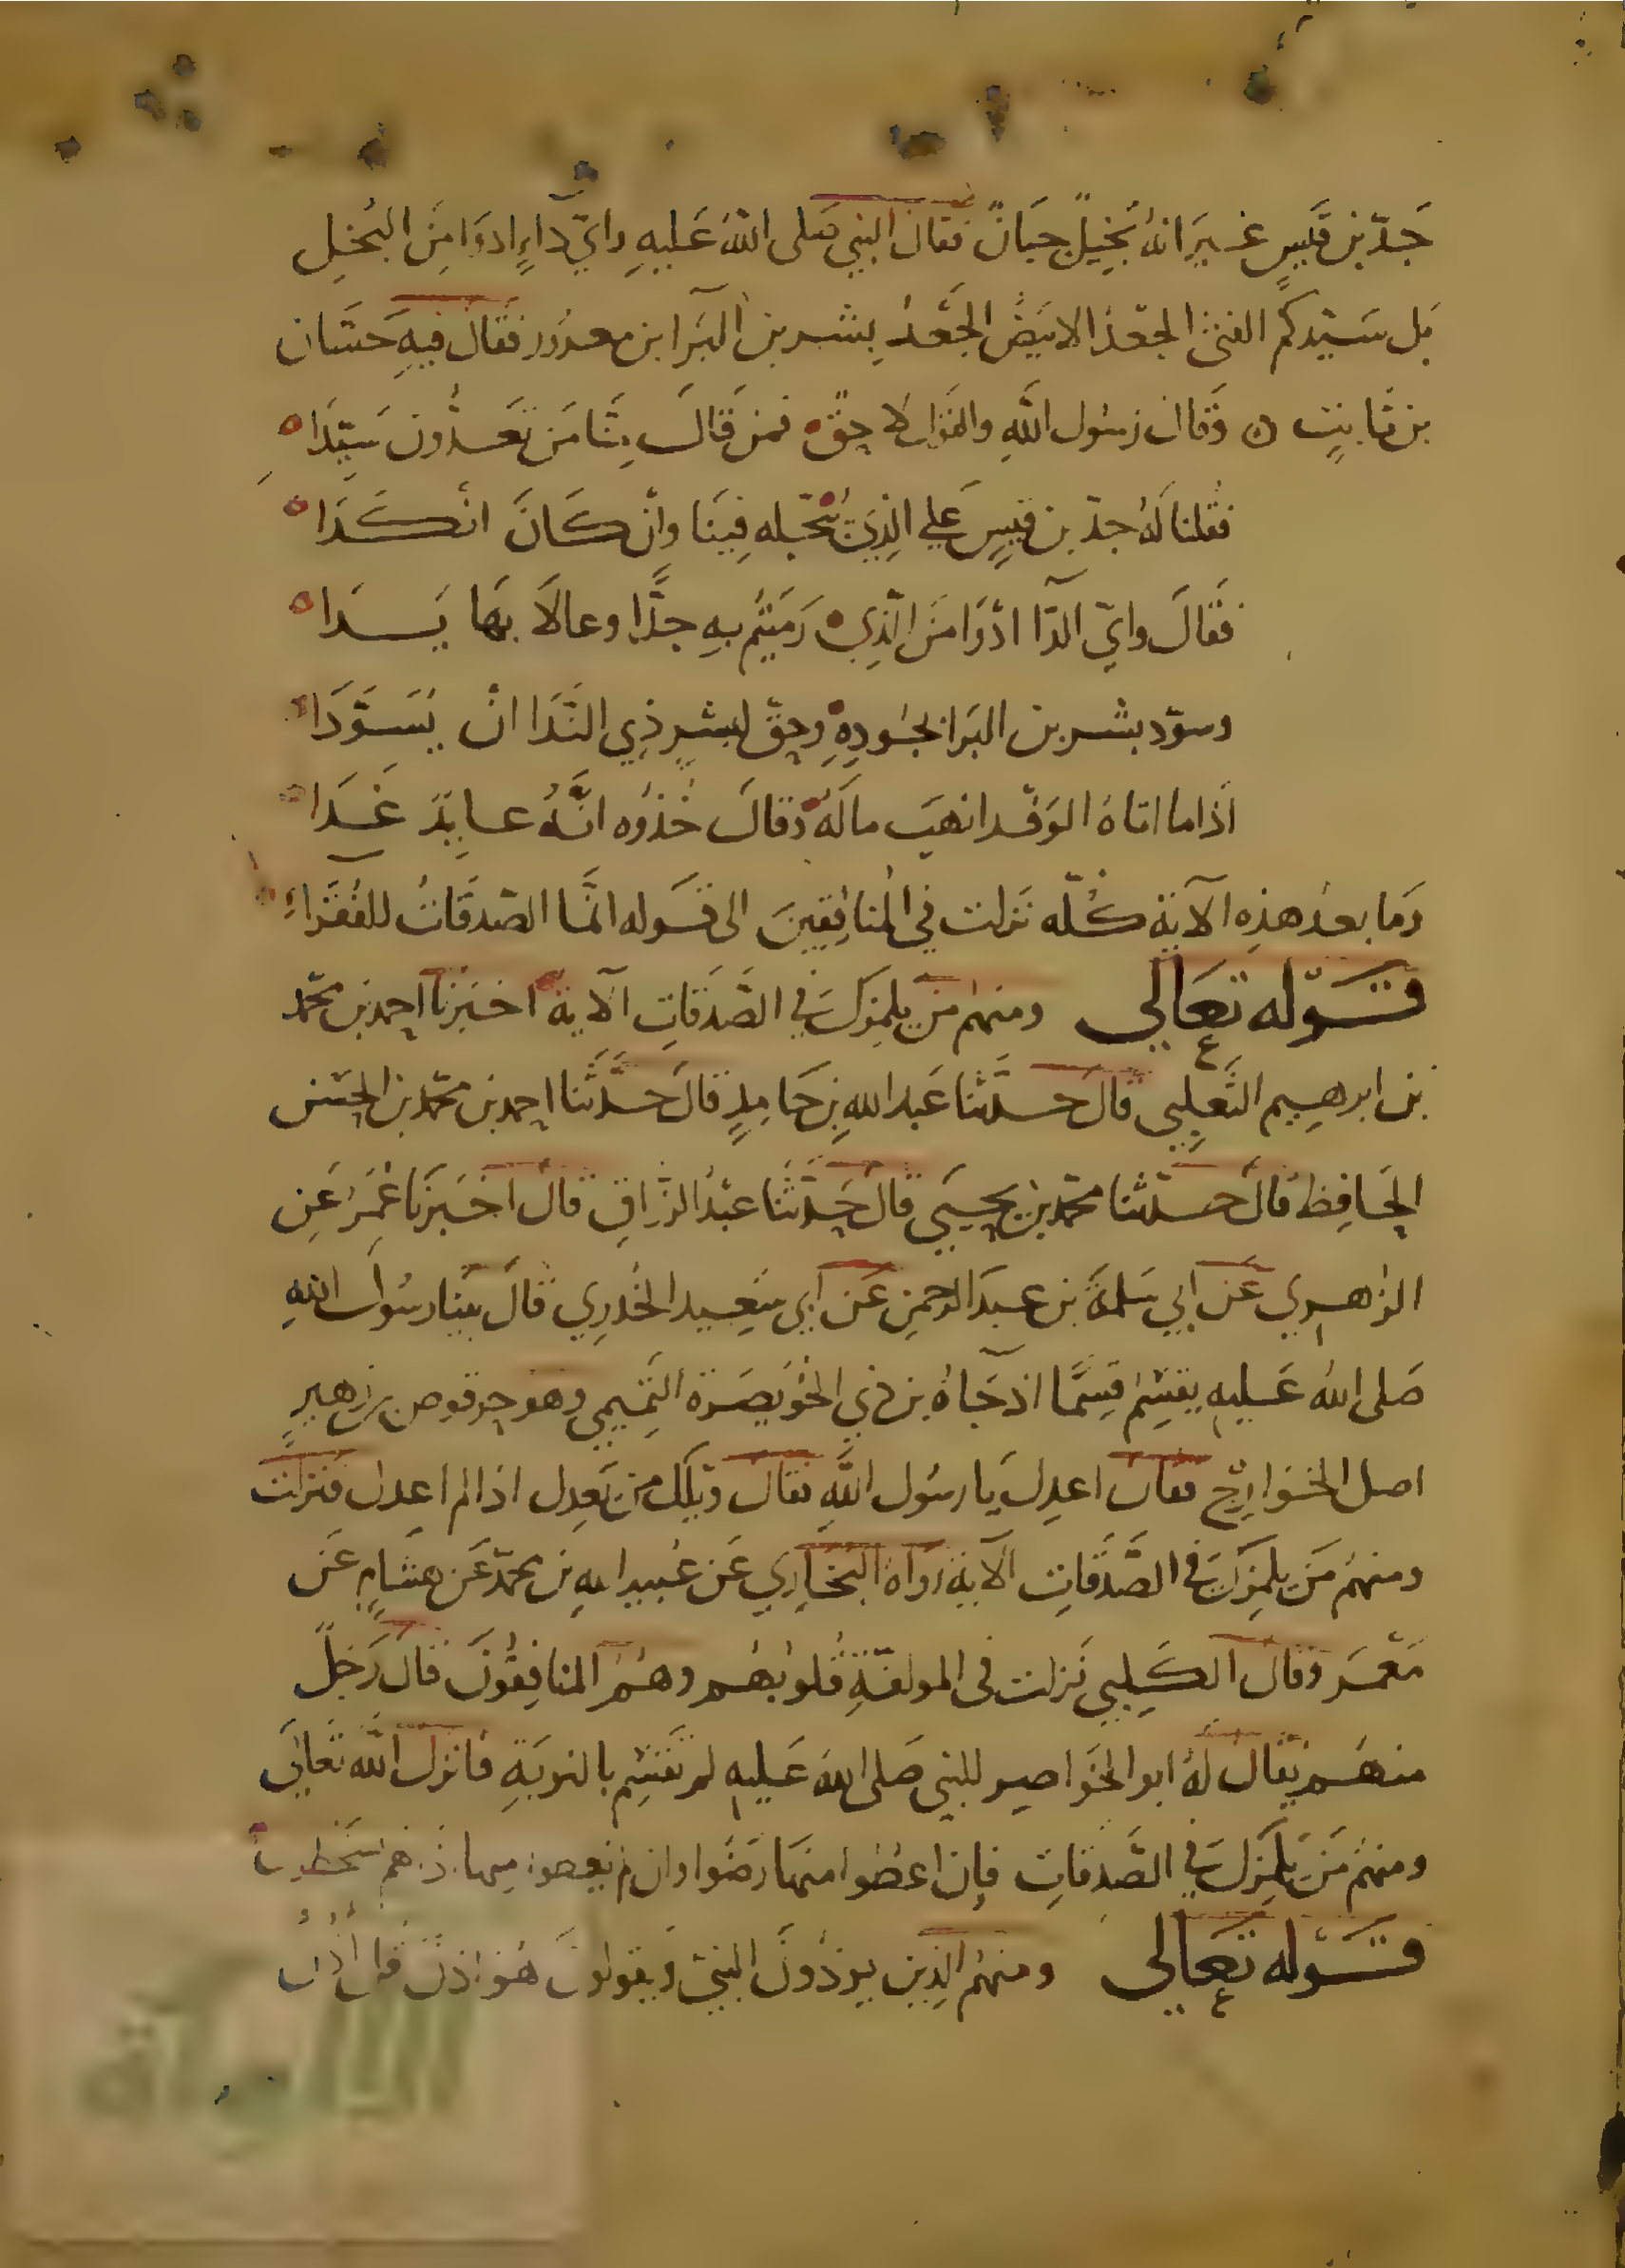 جَدّ بن قَيسٍ غيرَ انهُ بَخيلٌ جبَانٌ فقال النبي صَلى اللهُ عَليهِ وايّ دَآءٍ ادوَا مِنَ البُخلِ
بَل سَيّدكم الفتى الجعَد الابيَضُ الجَعدُ بِشر بن البَرا بن معرُور فقال فيهِ حَسّان
بن ثَابتٍ ه وَقال رسُول اللهِ والقول لاحِقٌ ه فمن قَالَ مِنّا مَن تَعَدّون سَيّدَا ه
فقلنا لهُ جدّ بن قَيسٍ عَلى الذِي نُبَخّله فينَا وانْ كَانَ انْكَدَا ه
فقَالَ وايّ الدّآ ادْوَا مِنَ الّذِي ه رَمَيتُم بهِ جدًّا وعالاَ بهَا يَدَا ه
وسوّد بشر بن البَرا بجُودِهِ وحقّ لبشرٍ ذِي النَّدَا انْ يُسَوّدَا ه
اذا ما اتاهُ الوَفْد انهبَ مالَهُ وَقالَ خُذوُه انَّهُ عايِدٌ غَدَا ه
وَما بعدَ هذِه الآية كُلّه نَزلت في المُنافِقينَ الى قَوله انّمَا الصّدقَاتُ للفُقَرآءِ
قَوله تعَالى ومنهم مَن يلمِزكَ في الصَّدَقَاتِ الآية اخبَرنَا احمد بن محمّد
بن ابرهيم الثَّعلِبي قال حَدّثنا عَبد اللهِ بن حَامِدٍ قالَ حَدَّثَنا احمد بن محمّد بن الحسَن
الحَافِظ قَالَ حدّثنا محمّد بن يحيى قالَ حَدّثَنا عَبْدُ الرّزاقِ قالَ اخبَرنَا مَعْمَر عَن
الزهري عَن ابي سَلَمَةَ بن عبَد الرحمنِ عَن ابي سَعِيد الخُدرِي قالَ بَينَا رسُولُ اللهِ
صَلى اللهُ عَليهِ يقسِم قِسمًا اذ جَآءهُ بن ذي الخُوَيصَرَة التّميمي وهو حرقوص بن زهيرٍ
اصل الخوَارِج فقال اعدِل يا رسُول اللهِ فقال وَيلَك من يعدِل اذا لم اعدِل فنزلَت
ومنهُم مَن يلمِزكَ في الصَّدَقَاتِ الآية رَواهُ البُخَارِي عَن عُبيد اللهِ بن محمّد عَن هشَامٍ عَن
مَعْمَر وَقال الكَلبي نَزلت في المولفَةِ قُلوبُهُم وهُم المنافِقُونَ قالَ رَجلٌ
منهُم يقَالُ لَهُ ابو الخَوَاصِر للنبي صَلى اللهُ عَليهِ لم تَقسِم بالسويَةِ فانزل اللهُ تعَالى
ومنهُم مَن يلمِزكَ في الصَّدَقاتِ فإن اعطُوا منهَا رَضُوا وان لم يعطوا منها اذا هم يَسخَطون
قَوله تعَالى ومنهُم الذِين يوذُونَ النبيّ وَيقولونَ هُو اذنٌ قل اذنُ